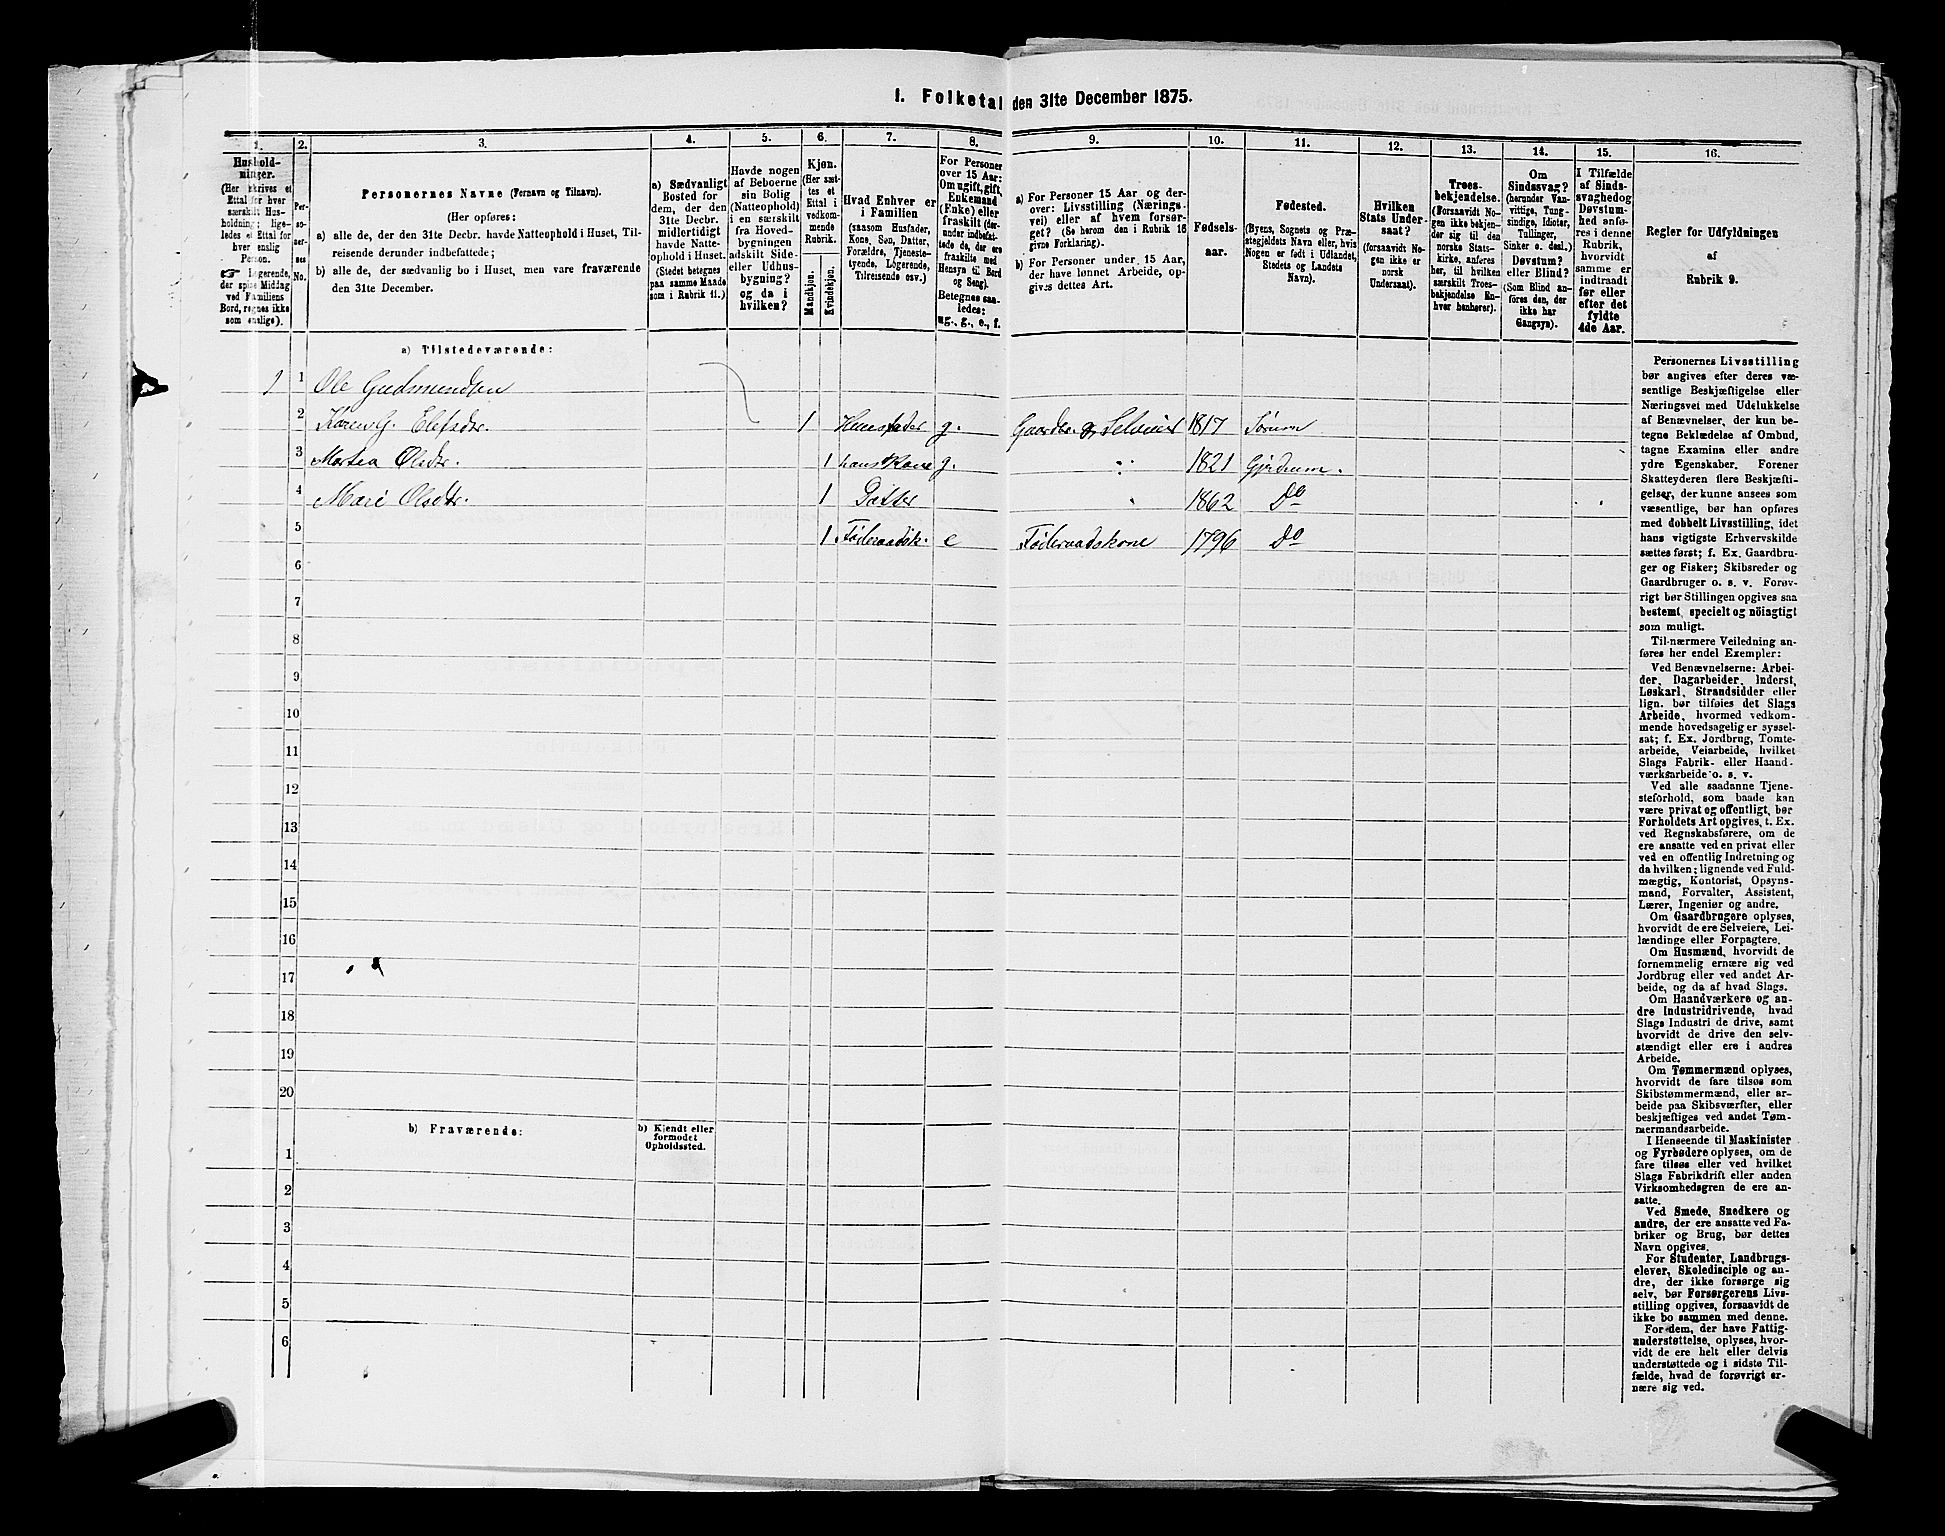 1. Folketal den 31te December 1875.
1. 2. 3. 4. 5. 6. 7. 8. 9. 10. 11. 12. 13. 14. 15. 16.
Hushold-
ninger.
(Her skrives et
Ettal for hver
særskilt Hus-
holdning; lige-
ledes et Ettal for
hver enslig
Person.
☞ Logerende,
der spise Middag
ved Familiens
Bord, regnes ikke
som enslige).
Per-
so-
ner-
nes
No.
Personernes Navne (Fornavn og Tilnavn).
(Her opføres:
a) alle de, der den 31te Decbr. havde Natteophold i Huset, Til-
reisende derunder indbefattede;
b) alle de, der sædvanlig bo i Huset, men vare fraværende
den 31te December.
a) Sædvanligt
Bosted for
dem, der den
31te Decbr.
midlertidigt
havde Natte-
ophold i Huset.
(Stedet betegnes
paa samme Maade
som i Rubrik 11.)
Havde nogen
af Beboerne
sin Bolig
(Natteophold)
i en særskilt
fra Hoved-
bygningen
adskilt Side-
eller Udhus-
bygning?
og da i
hvilken?
Kjøn.
(Her sæt-
tes et
Ettal i
vedkom-
mende
Rubrik.
Mandkjøn.
Kvindekjøn.
Hvad Enhver er
i Familien
(saasom Husfader,
Kone, Søn, Datter,
Forældre, Tjeneste-
tyende, Logerende,
Tilreisende osv.)
For Personer
over 15 Aar:
Om ugift, gift,
Enkemand
(Enke) eller
fraskilt (der-
under indbefat-
tede de, der ere
fraskilte med
Hensyn til Bord
og Seng).
Betegnes saa-
ledes:
ug., g., e., f.
a) For Personer 15 Aar og der-
over: Livsstilling (Nærings-
vei) eller af hvem forsør-
get? (Se herom den i Rubrik 16
givne Forklaring).
b) For Personer under 15 Aar,
der have lønnet Arbeide, op-
gives dettes Art.
Fødsels-
aar.
Fødested.
(Byens, Sognets og Præ-
stegjeldets Navn eller, hvis
Nogen er født i Udlandet,
Stedets og Landets
Navn).
Hvilken
Stats Under-
saat?
(forsaavidt No-
gen ikke er
norsk
Undersaat).
Troes-
bekjendelse.
(Forsaavidt No-
gen ikke bekjen-
der sig til den
norske Stats-
kirke, anføres
her, til hvilken
særskilt Troes-
bekjendelse En-
hver henhører).
Om
Sindssvag?
(herunder Van-
vittige, Tung-
sindige, Idioter,
Tullinger,
Sinker o. desl.)
Døvstum?
eller Blind?
(Som Blind an-
føres den, der
ikke har
Gangsyn).
I Tilfælde
af Sinds-
svaghed og
Døvstum-
hed anfø-
res i denne
Rubrik,
hvorvidt
samme er
indtraadt
før eller
efter det
fyldte
4de Aar.
Regler for Udfyldningen
af
Rubrik 9.
a) Tilstedeværende:
1 1 Ole Gudmundsen
2 Karen G. Elefsdr. 1 Huusfader g. Gaardbr. og Selveier 1817 Sørum
3 Martea Olsdr. 1 hans Kone g. " 1821 Gjerdrum.
4 Mari Olsdtr. 1 Datter " 1862 Do
5 1 Føderaadsk. e Føderaadskone 1796 Do
6
7
8
9
10
11
12
13
14
15
16
17
18
19
20
b) Fraværende: b) Kjendt eller
formodet
Opholdssted.
1
2
3
4
5
6
Personernes Livsstilling
bør angives efter deres væ-
sentlige Beskjæftigelse eller
Næringsvei med Udelukkelse
af Benævnelser, der kun be-
tegne Beklædelse af Ombud,
tagne Examina eller andre
ydre Egenskaber. Forener
Skatteyderen flere Beskjæfti-
gelser, der kunne ansees som
væsentlige, bør han opføres
med dobbelt Livsstilling, idet
hans vigtigste Erhvervskilde
sættes først; f. Ex. Gaardbru-
ger og Fisker; Skibsreder og
Gaardbruger o. s. v. Forøv-
rigt bør Stillingen opgives saa
bestemt, specielt og nöiagtigt
som muligt.
Til nærmere Veiledning an-
føres her endel Exempler:
Ved Benævnelserne: Arbei-
der, Dagarbeider, Inderst,
Løskarl, Strandsidder eller
lign. bør tilføies det Slags
Arbeide, hvormed vedkom-
mende hovedsagelig er syssel-
sat; f. Ex. Jordbrug, Tomte-
arbeide, Veiarbeide, hvilket
Slags Fabrik- eller Haand-
værksarbeide o. s. v.
Ved alle saadanne Tjene-
steforhold, som baade kan
være privat og offentligt, bør
Forholdets Art opgives, t. Ex.
ved Regnskabsførere, om de
ere ansatte ved en privat eller
ved en offentlig Indretning og
da hvilken; lignende ved Fuld-
mægtig, Kontorist, Opsyns-
mand, Forvalter, Assistent,
Lærer, Ingeniør og andre.
Om Gaardbrugere oplyses,
hvorvidt de ere Selveiere, Lei-
lændinge eller Forpagtere.
Om Husmænd, hvorvidt de
fornemmelig ernære sig ved
Jordbrug eller ved andet Ar-
beide, og da af hvad Slags.
Om Haandværkere og an-
dre Industridrivende, hvad
Slags Industri de drive, samt
hvorvidt de drive den selv-
stændigt eller ere i andres
Arbeide.
Om Tømmermænd oplyses,
hvorvidt de fare tilsøs som
Skibstømmermænd, eller ar-
beide paa Skibsværfter, eller
beskjæftiges ved andet Tøm-
mermandsarbeide.
I Henseende til Maskinister
og Fyrbødere oplyses, om de
fare tilsøs eller ved hvilket
Slags Fabrikdrift eller anden
Virksomhedsgren de ere an-
satte.
Ved Smede, Snedkere og
andre, der ere ansatte ved Fa-
briker og Brug, bør dettes
Navn opgives.
For Studenter, Landbrugs-
elever, Skoledisciple og an-
dre, der ikke forsørge sig
selv, bør Forsørgerens Livs-
stilling opgives, forsaavidt de
ikke bo sammen med denne.
For dem, der have Fattig-
understøttelse, oplyses, hvor-
vidt de ere helt eller delvis
understøttede og i sidste Til-
fælde, hvad de forøvrigt er-
nære sig ved.